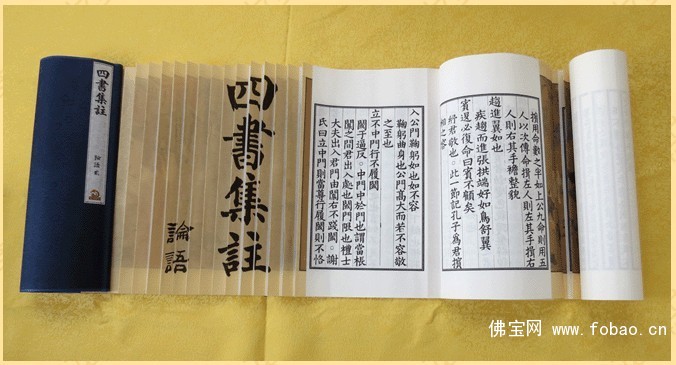 四書集註
四書集註
論語
擯用命數之半如上公九命則用五
人以次傳命揖左人則左其手揖右
人則右其手襜整貌
趨進翼如也
疾趨而進張拱端好如鳥舒翼
賓退必復命曰賓不顧矣
紓君敬也○此一節記孔子為君擯
相之容
入公門鞠躬如也如不容
鞠躬曲身也公門高大而若不容敬
之至也
立不中門行不履閾
閾于逼反○中門中於門也謂當棖
闑之間君出入處也閾門限也禮士
大夫出入君門由闑右不踐閾○謝
氏曰立中門則當尊行履閾則不恪
佛宝网 www.fobao.cn